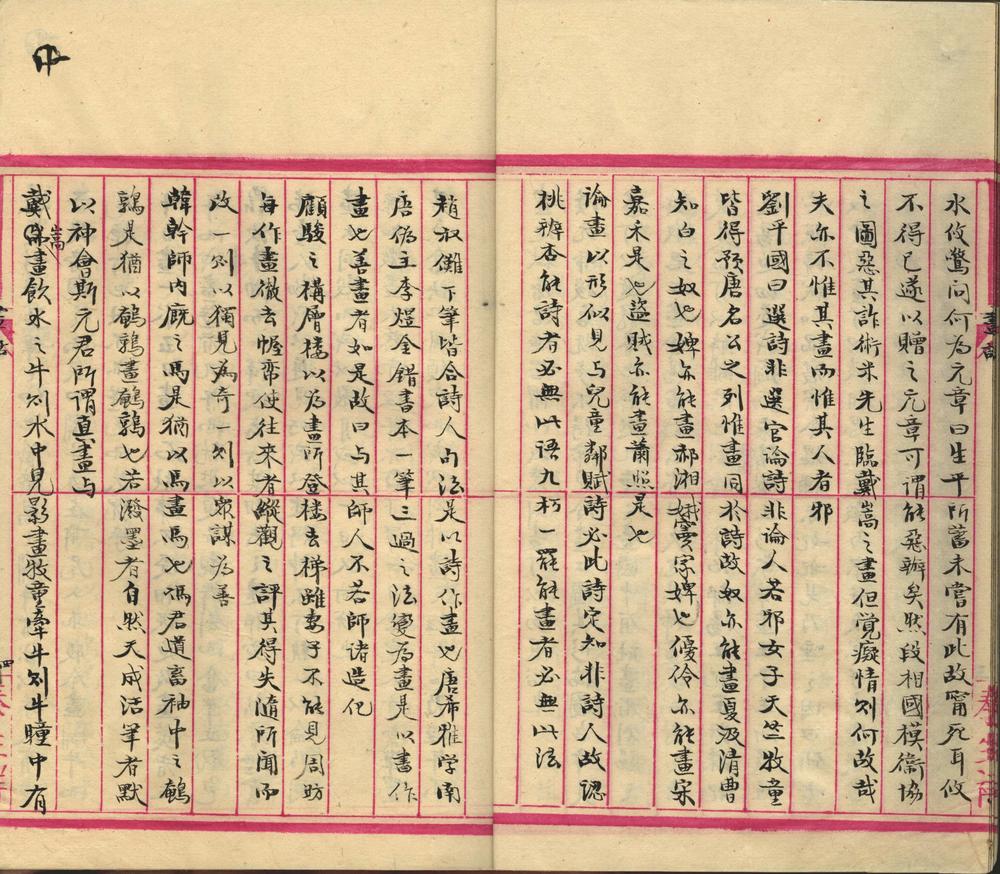 水攸驚問何為元章曰生平所蓄未嘗有此故甯死耳攸
不得已遂以贈之元章可謂能惡辦矣然段相國模衛協
之圖惡其詐術米先生臨戴嵩之畫但覺癡情則何故哉
夫亦不惟其畫而惟其人者邪
劉平國曰選詩非選官論詩非論人若邪女子天竺牧童
皆得預唐名公之列惟畫同於詩故奴亦能畫夏汲清曹
知白之奴也婢亦能畫郝湘娥竇家婢也優伶亦能畫宋
嘉禾是也盜賊亦能畫蕭照是也
論畫以形似見与兒童鄰賦詩必此詩定知非詩人故認
桃辨杏能詩者必無此語九朽一罷能畫者必無此法
趙叔儺下筆皆合詩人句法是以詩作畫也唐希雅学南
唐偽主李煜金錯書本一筆三過之法變為畫是以書作
畫也善畫者如是故曰与其師人不若師诸造化
顧駿之構層樓以為畫所登楼去梯雖妻子不能見周昉
每作畫徹去幄帟使往來者縱觀之評其得失隨所聞而
改一则以獨見為奇一则以衆謀为善
韓幹師内厩之馬是猶以馬畫馬也馮君道畜袖中之鵪
鶉是猶以鵪鶉畫鵪鶉也若潑墨者自然天成活筆者默
以神會斯元君所謂真畫与
戴嵩畫飲水之牛则水中見影畫牧童牽牛则牛瞳中有